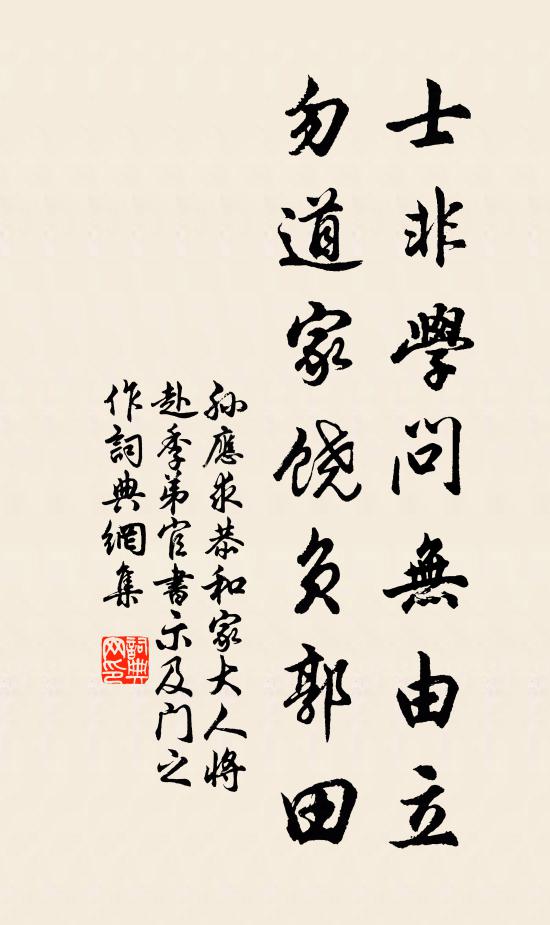 士非學問無由立
勿道家饒負郭田
孙應求恭和家大人將
赴季弟官書示及门之
作詞典網集
詞典
网印